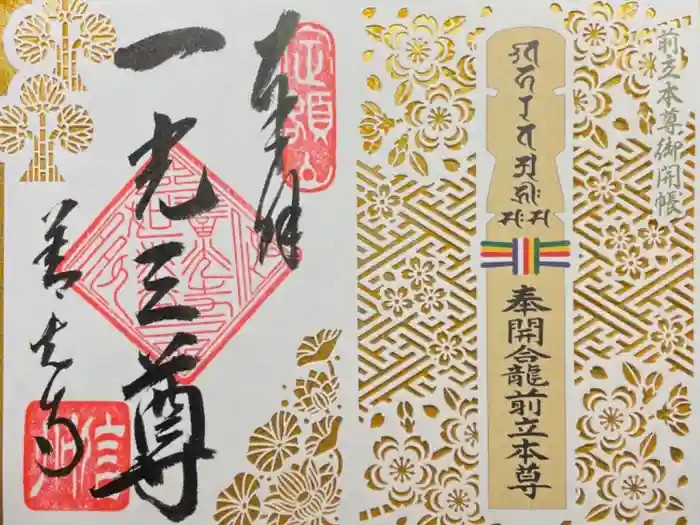 前立本尊御開帳
奉開合龍前立本尊
奉拝
一光三尊
善光寺
定額山
信州